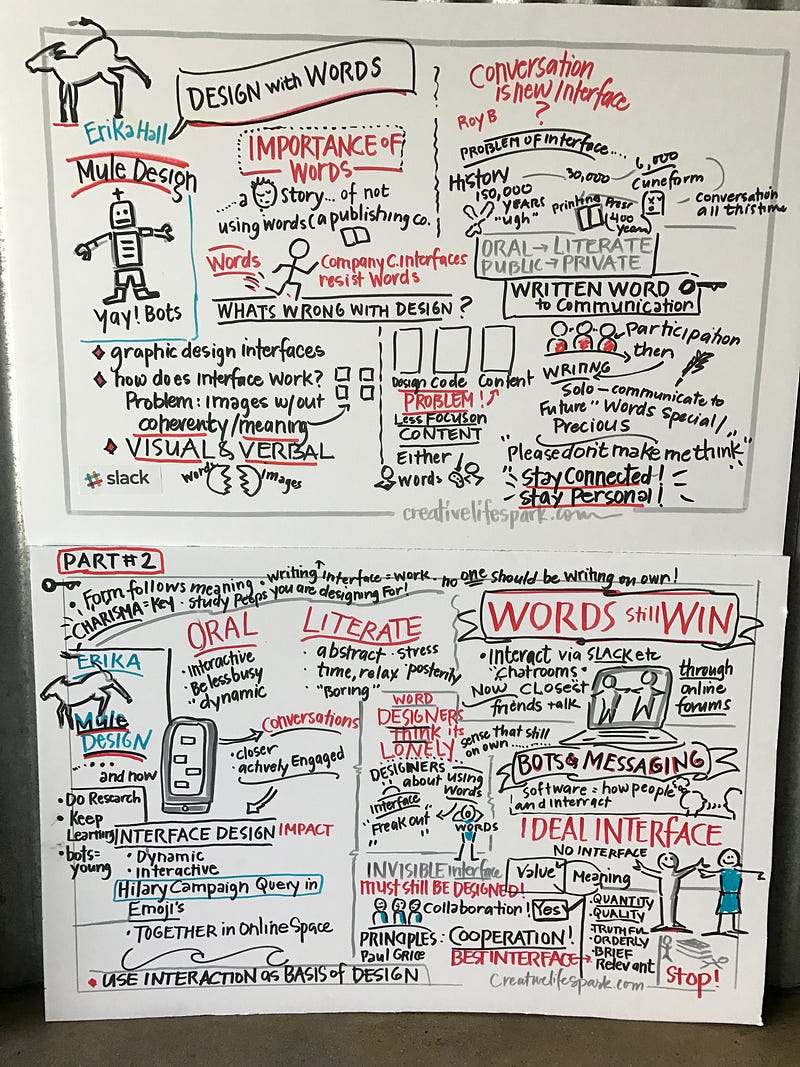 DESIGN with WORDS
Erika Hall
Mule Design
yay! Bots
IMPORTANCE OF
WORDS
...a story... of not
using words (a publishing co.
Words
Company C. Interfaces
resist Words
WHATS WRONG WITH DESIGN?
graphic design interfaces
how does interface work?
Problem: images w/out
coherenty/meaning
VISUAL & VERBAL
slack
words
images
Design Code Content
PROBLEM!
Less Focus on
CONTENT
Either
words
Conversation
is new Interface
?
Roy B
PROBLEM OF Interface....
History
150,000
YEARS
"ugh"
30,000
6,000
Cuneform
Printing Press
(400
years)
Conversation
all this time
ORAL → LITERATE
PUBLIC → PRIVATE
WRITTEN WORD
to Communication
Participation
then
WRITING
Solo - communicate to
Future "Words Special/
Precious
"Please don't make me think"
Stay Connected!
Stay Personal!
creativelifespark.com
PART #2
• Form follows meaning • writing interface = work - no one should be writing on own!
CHARISMA = Key - Study Peeps you are designing For!
ERIKA
Mule
DESIGN
.... and now
• Do Research
• Keep
Learning
• bots-
young
ORAL
• interactive
• Be less busy
• dynamic
LITERATE
• abstract • stress
• time, relax "posterity
• "Boring"
Conversations
• closer
• actively Engaged
INTERFACE DESIGN IMPACT
• Dynamic
• Interactive
Hilary Campaign Query in
Emoji's
• TOGETHER in Online Space
• USE INTERACTION AS BASIS of DESIGN
WORD
DESIGNERS
think its
LONELY
DESIGNERS
about using
Words
interface
"Freak out"
WORDS
INVISIBLE interface
must still BE DESIGNED!
Collaboration! Yes
PRINCIPLES: COOPERATION!
Paul Grice
BEST INTERFACE
WORDS still WIN
• Interact via SLACK etc
"Chatrooms"
Now Closest
friends talk
through
online
forums
sense that still
on own.....
BOTS & MESSAGING
Software = how people
and interract
IDEAL INTERFACE
NO INTERFACE
Value
Meaning
• QUANTITY
• QUALITY
• TRUTHFUL
• ORDERLY
• BRIEF
Relevant
Stop!
Creativelifespark.com